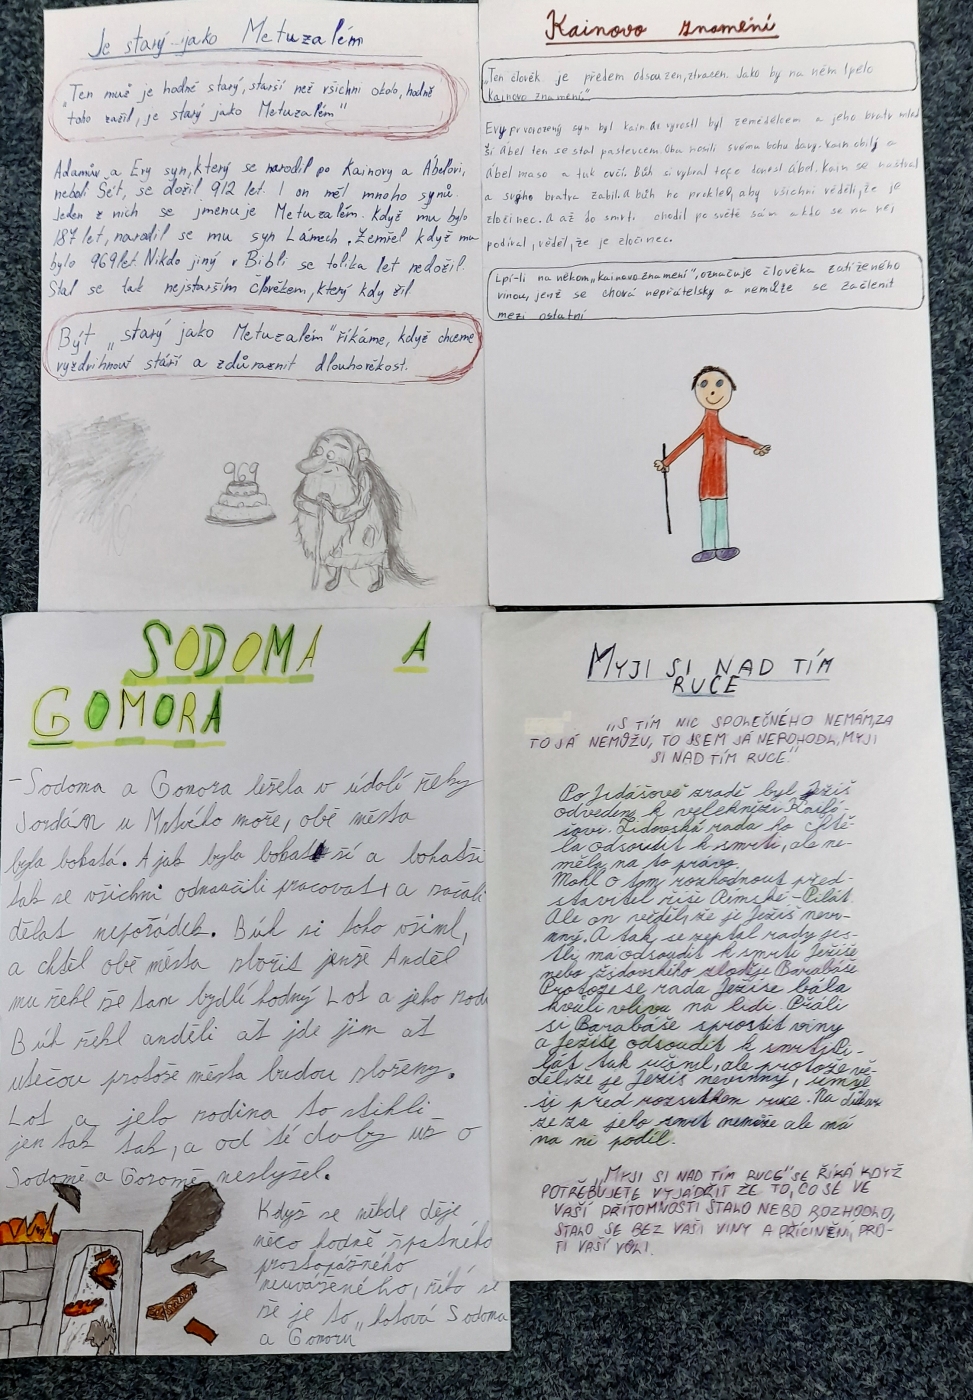 Je starý jako Metuzalém
„Ten muž je hodně starý, starší než všichni okolo, hodně
toho zažil, je starý jako Metuzalém"
Adamův a Evy syn, který se narodil po Kainovy a Ábelovi,
neboť Šét, se dožil 912 let. I on měl mnoho synů.
Jeden z nich se jmenuje Metuzalém. Když mu bylo
187 let, narodil se mu syn Lámech. Zemřel když mu
bylo 969 let. Nikdo jiný v Bibli se tolika let nedožil.
Stal se tak nejstarším člověkem, který kdy žil
Být „starý jako Metuzalém" říkáme, když chceme
vyzdvihnout stáří a zdůraznit dlouhověkost.
969
Kainovo znamení
„Ten člověk je předem odsouzen, ztracen. Jako by na něm lpělo
kainovo znamení"
Evy prvorozený syn byl kain. Ač vyrostl byl zemědělcem a jeho bratr mlad
ší Ábel ten se stal pastevcem. Oba nosili svému bohu dary. Kain obilý a
Ábel maso a tuk ovčí. Bůh si vybral Ábel. Kain se naštval
a svého bratra zabil. A bůh ho proklel, aby všichni věděli, že je
zločinec. A až do smrti chodil po světě sám a kdo se na něj
podíval, věděl, že je zločinec.
Lpí-li na někom „kainovo znamení", označuje člověka zatíženého
vinou, jenž se chová nepřátelsky a nemůže se začlenit
mezi ostatní
SODOMA A
GOMORA
- Sodoma a Gomora ležela v údolí řeky
Jordán u Mrtvého moře, obě města
byla bohatá. A jak byla bohatší a bohatší
tak se všichni odnaučili pracovat, a začali
dělat nepořádek. Bůh si toho všiml,
a chtěl obě města zložit jenže Anděl
mu řekl že tam bydlí hodný Lot a jeho rodi
Bůh řekl anděli ať jde jim ať
utečou protože města budou zložený.
Lot a jeho rodina to stihli
jen tak tak, a od té doby už o
Sodomě a Gomoře neslyšel.
Když se někde děje
něco hodně špatného
prostopášného
neuváženého, říká se
že je to „hotová Sodoma
a Gomoru
MYJI SI NAD TÍM
RUCE
„S TÍM NIC SPOLEČNÉHO NEMÁM, ZA
TO JÁ NEMŮŽU, TO JSEM JÁ NEROHODL, MYJI
SI NAD TÍM RUCE"
Po Jidášově zradě byl Ježíš
odveden k veleknězi Kaifá-
šovi. Židovská rada ho chtě-
la odsoudit k smrti, ale ne-
měla na to právo.
Mohl o tom rozhodnout před-
stavitel říše Římské - Pilát.
Ale on věděl, že je Ježíš nevin-
nný. A tak se zeptal rady jes-
tli má odsoudit k smrti Ježíše
nebo židovského zloděje Barabáše
Protože se rada Ježíše bála
kvůli vlivu na lidi. Přáli
si Barabáše sprostit viny
a Ježíše odsoudit k smrti. Pi-
lát tak učinil, ale protože vě-
děl, že je Ježíš nevinný, umyl
si před rozsudkem ruce. Na důkaz
že za jeho smrt nemůže ale má
na ní podíl.
„MYJI SI NAD TÍM RUCE" SE ŘÍKÁ KDYŽ
POTŘEBUJETE VYJÁDŘIT ŽE TO, CO SE VE
VAŠÍ PŘÍTOMNOSTI STALO NEBO ROZHODLO,
STALO SE BEZ VAŠÍ VINY A PŘIČINĚNÍ, PRO-
TI VAŠÍ VŮLI.